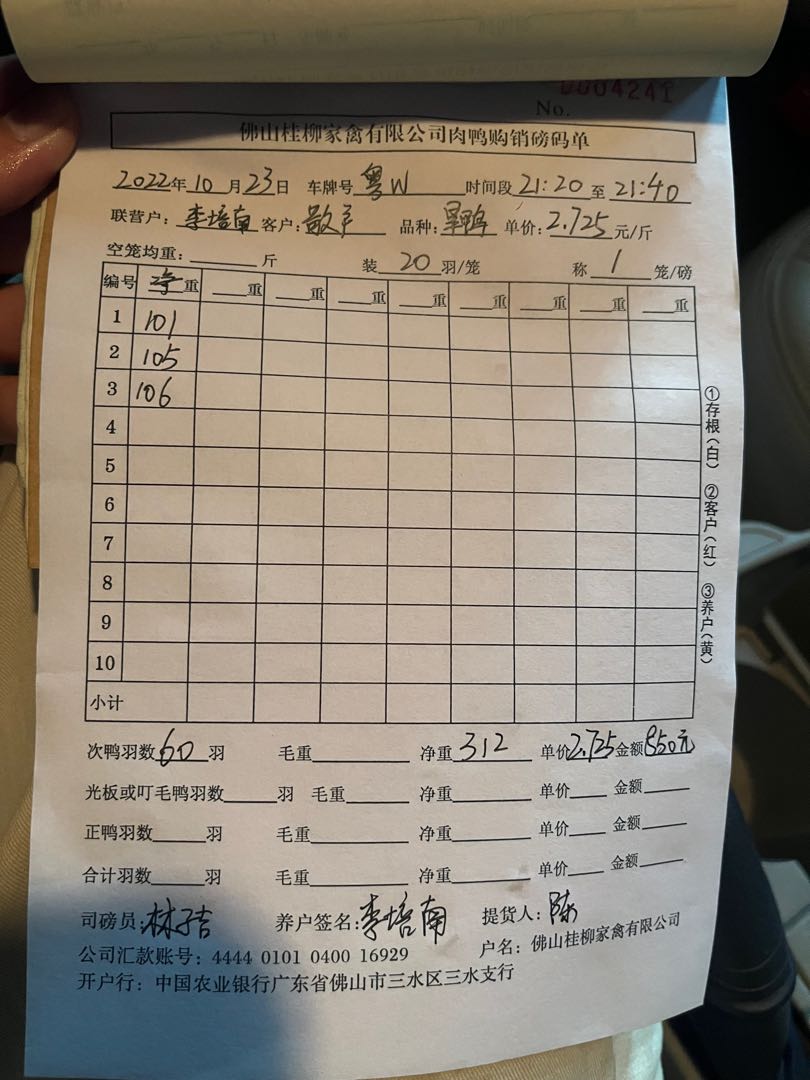 No. 0004241
佛山桂柳家禽有限公司肉鸭购销磅码单
2022年 10 月 23日 车牌号 粤W 时间段 21:20 至 21:40
联营户: 李培南 客户: 散户 品种: 旱鸭 单价: 2.725 元/斤
空笼均重: 斤 装 20 羽/笼 称 1 笼/磅
编号 净重 重 重 重 重 重 重 重 重
1 101
2 105
3 106
4
5
6
7
8
9
10
小计
次鸭羽数 60 羽 毛重 净重 312 单价 2.725 金额 850元
光板或叮毛鸭羽数 羽 毛重 净重 单价 金额
正鸭羽数 羽 毛重 净重 单价 金额
合计羽数 羽 毛重 净重 单价 金额
司磅员: 林 养户签名: 李培南 提货人: 陈
公司汇款账号: 4444 0101 0400 16929 户名: 佛山桂柳家禽有限公司
开户行: 中国农业银行广东省佛山市三水区三水支行
①存根(白) ②客户(红) ③养户(黄)